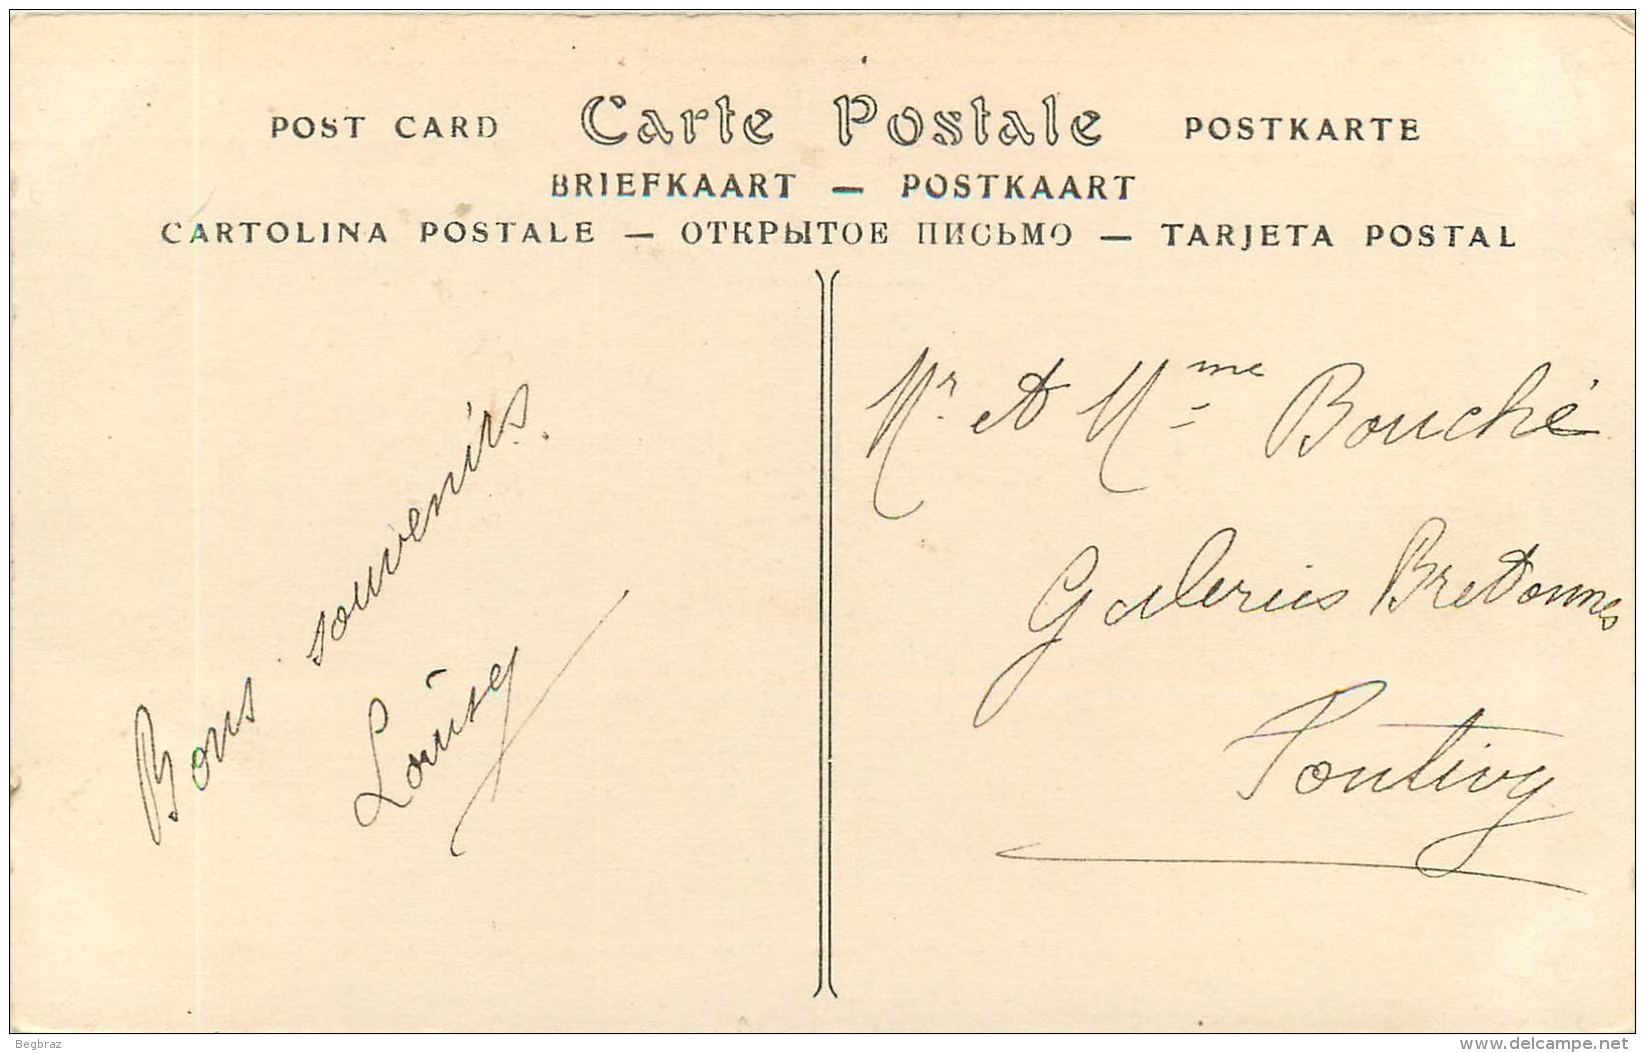 POST CARD Carte Postale POSTKARTE
BRIEFKAART — POSTKAART
CARTOLINA POSTALE — ОТКРЫТОЕ ПИСЬМО — TARJETA POSTAL
Bons souvenirs.
Mr. et Mme Bouché
Galeries Bretonnes
Pontivy
Begbraz
www.delcampe.net